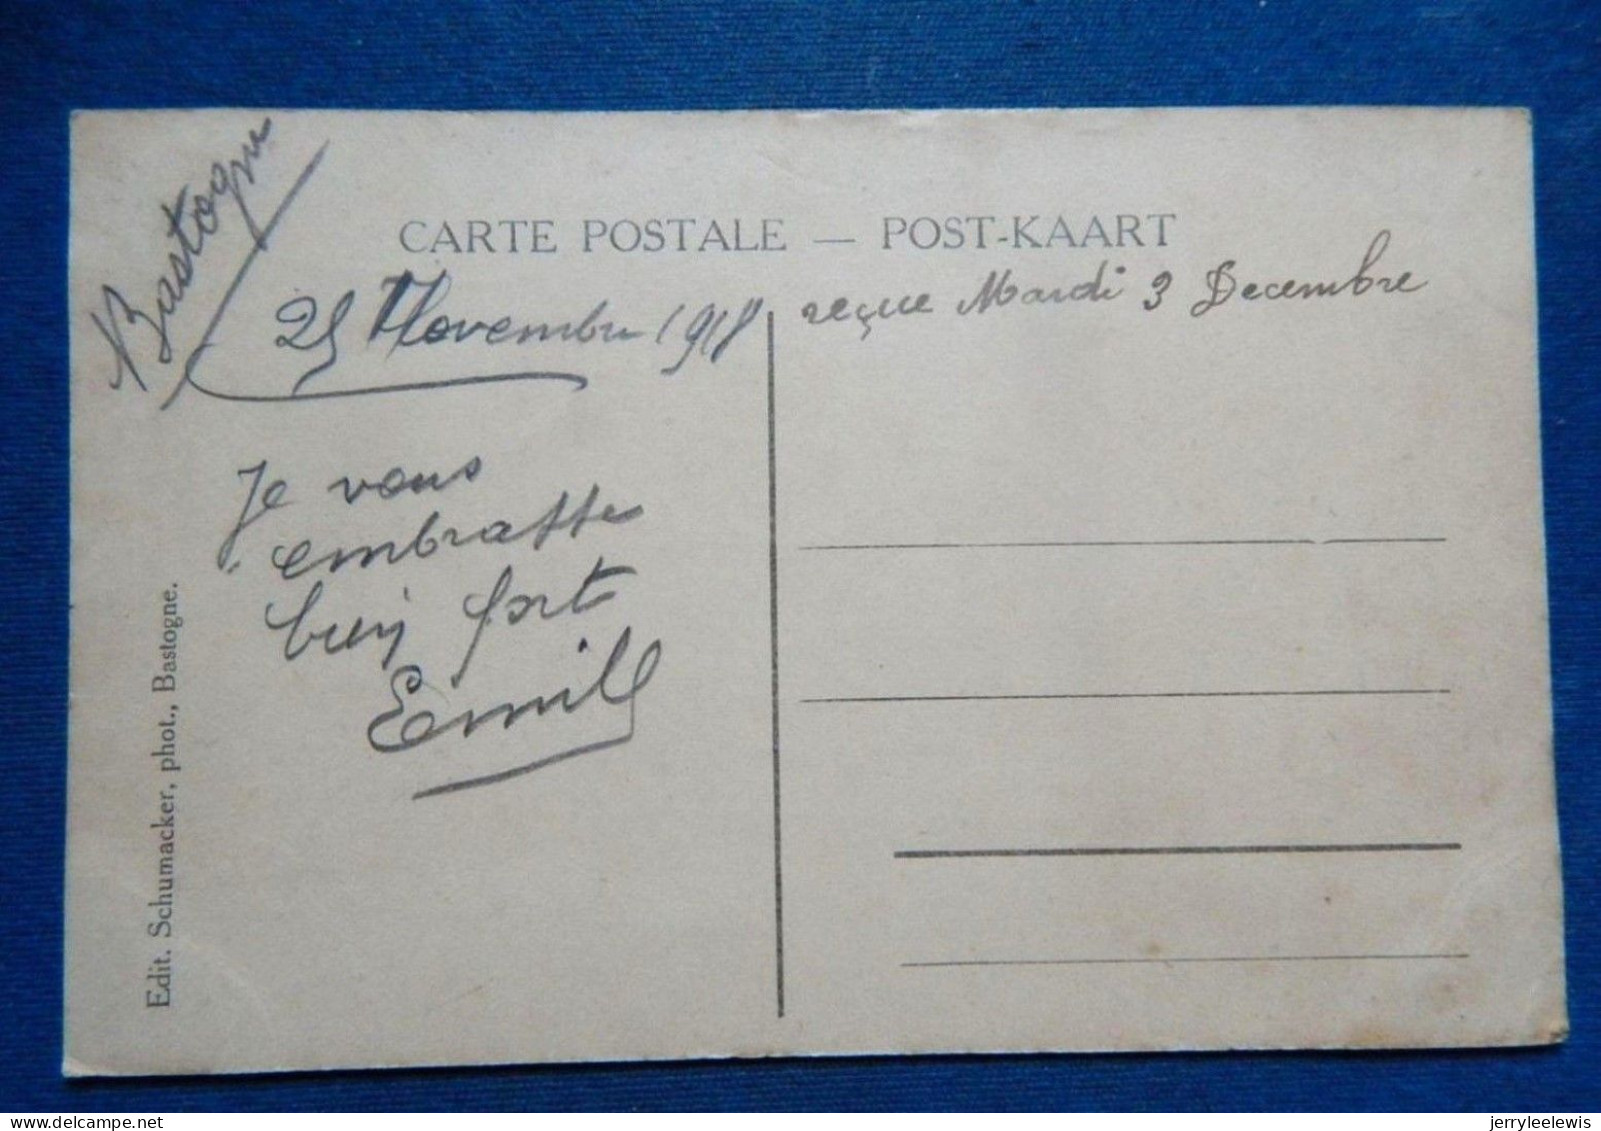 Bastogne
CARTE POSTALE — POST-KAART
25 Novembre 1918
reçue Mardi 3 Decembre
Je vous
embrasse
bien fort
Emile
Edit. Schumacker, phot., Bastogne.
jerryleelewis